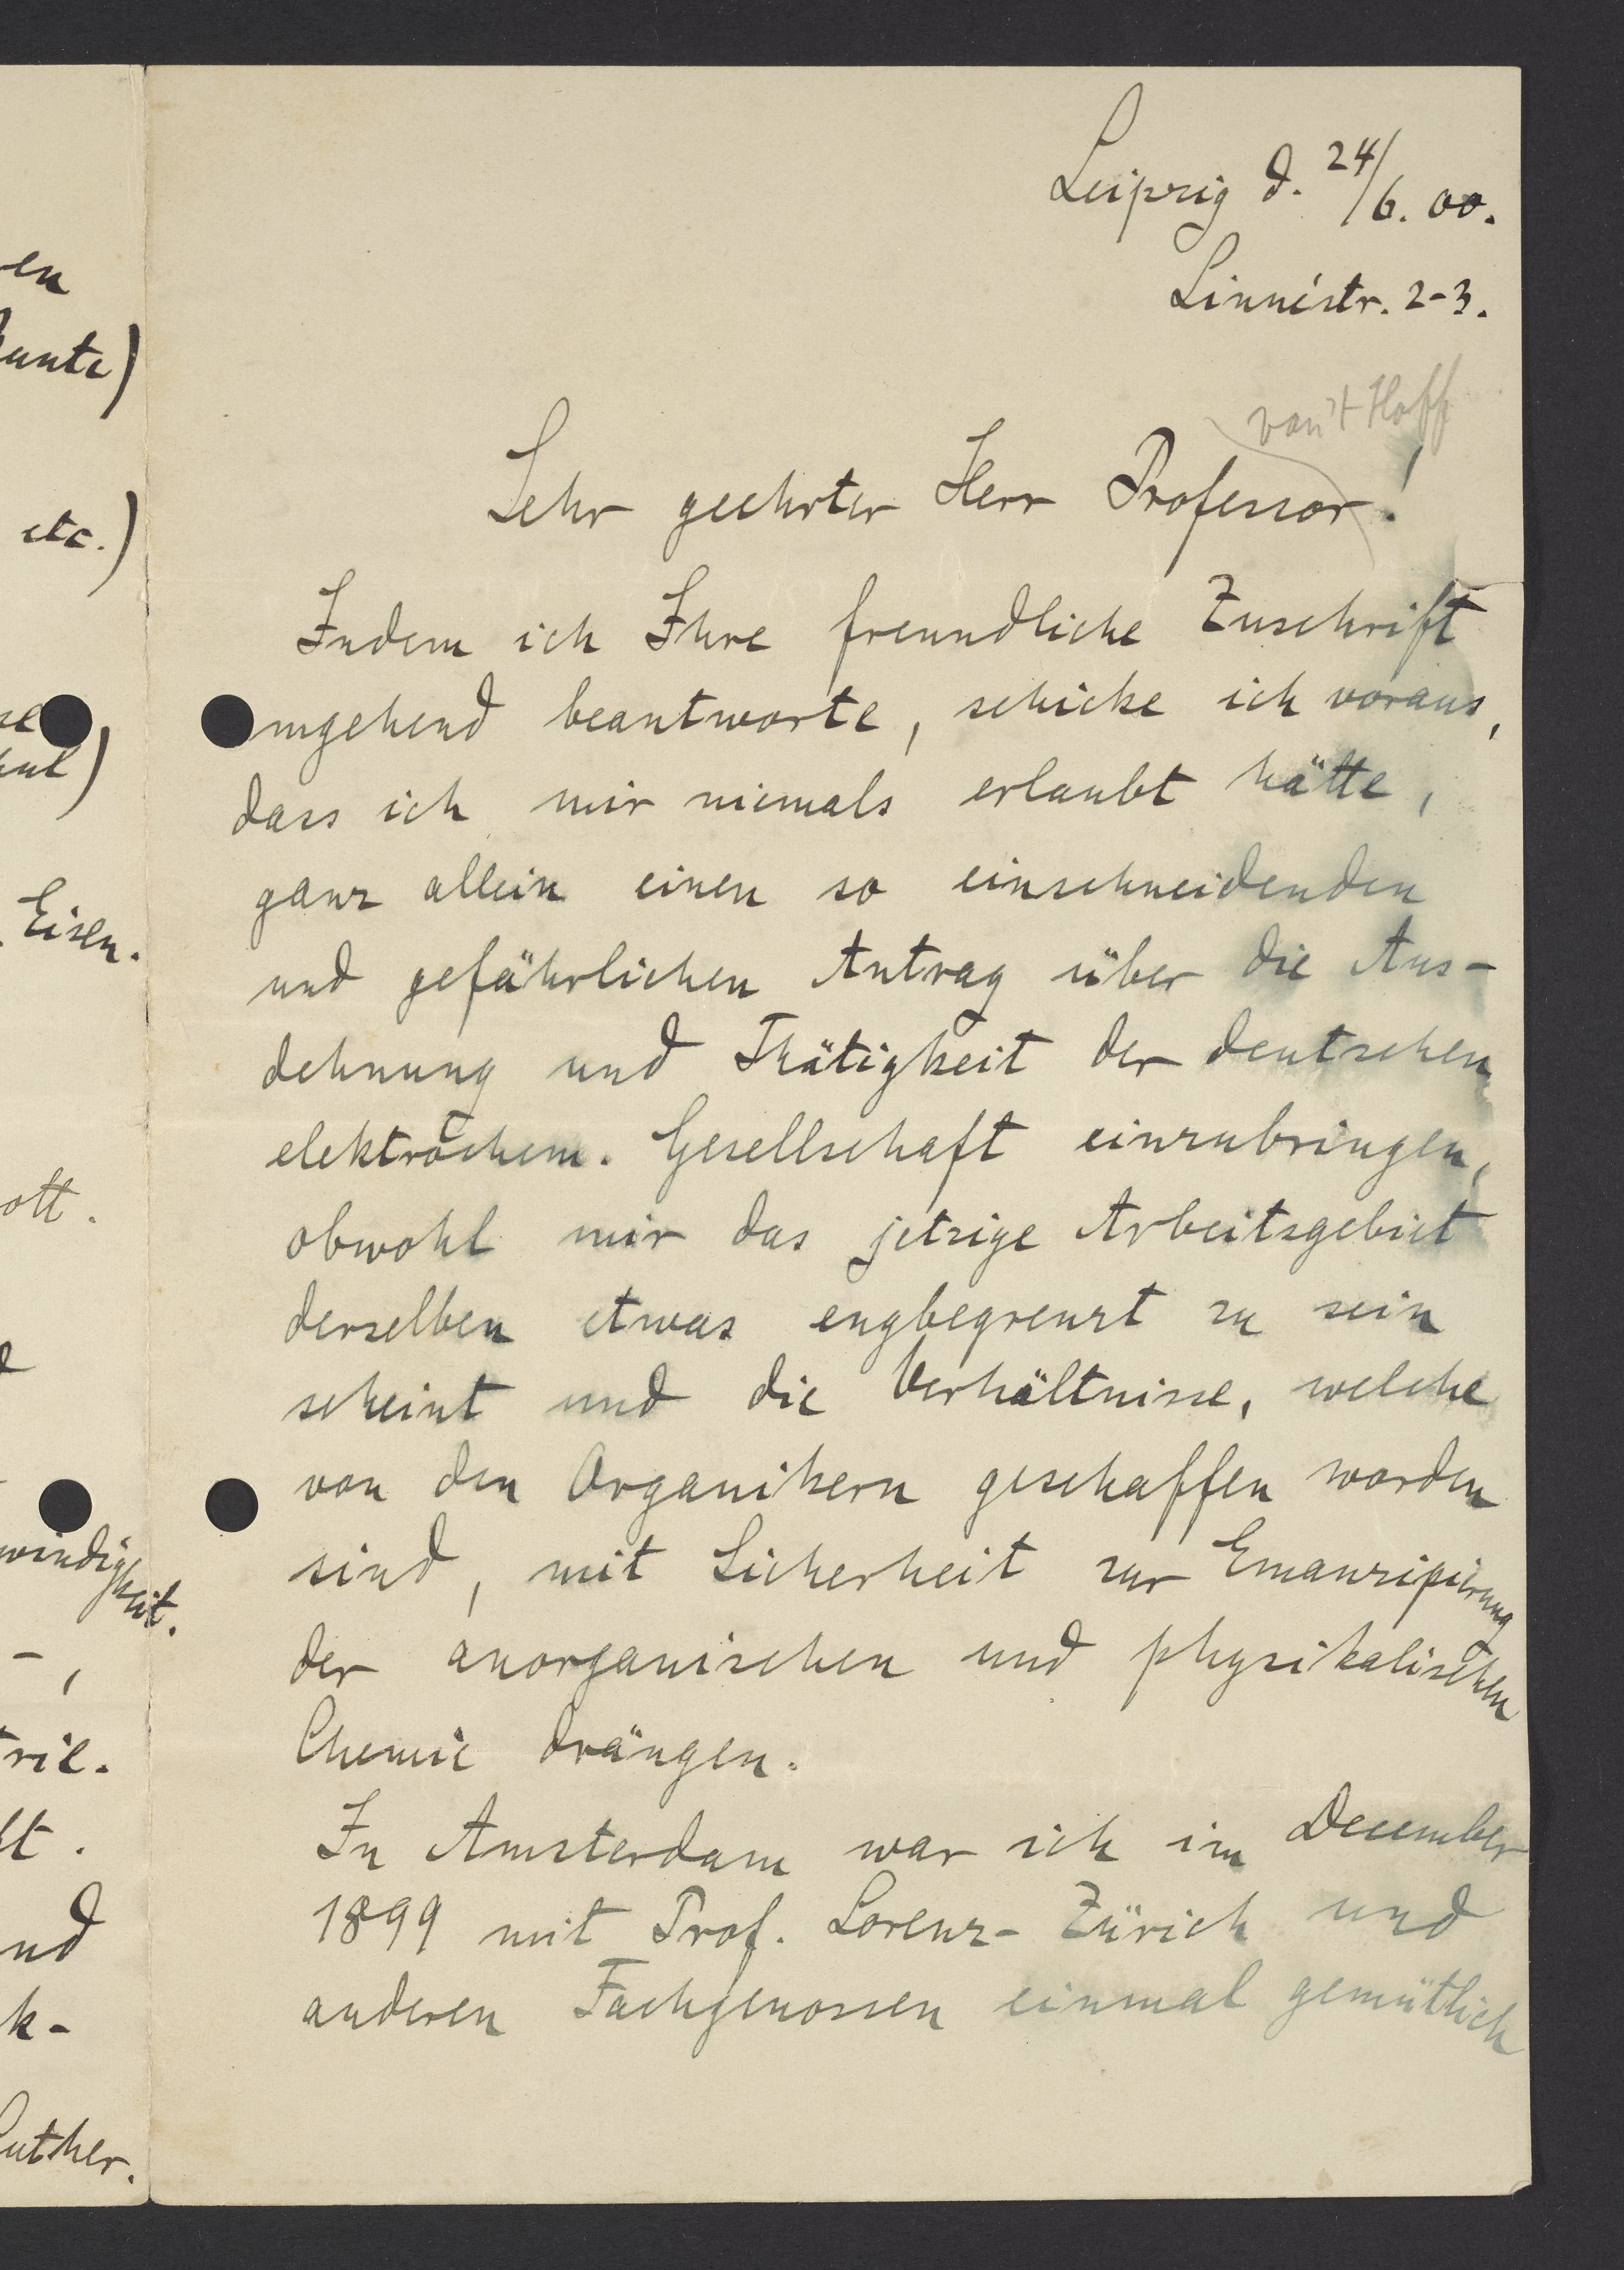 en
etc.)
Eisen.
ott.
windigkeit.
rie.
nd
k-
Luther.
Leipzig d. 24/6. 00.
Linnéstr. 2-3.
van't Hoff
Sehr geehrter Herr Professor!
Indem ich Ihre freundliche Zuschrift
umgehend beantworte, schicke ich voraus,
dass ich mir niemals erlaubt hätte,
ganz allein einen so einschneidenden
und gefährlichen Antrag über die Aus-
dehnung und Thätigkeit der deutschen
elektrochem. Gesellschaft einzubringen,
obwohl mir das jetzige Arbeitsgebiet
derselben etwas engbegrenzt zu sein
scheint und die Verhältnisse, welche
von den Organikern geschaffen worden
sind, mit Sicherheit zur Emanzipirung
der anorganischen und physikalischen
Chemie drängen.
In Amsterdam war ich im December
1899 mit Prof. Lorenz-Zürich und
anderen Fachgenossen einmal gemütlich